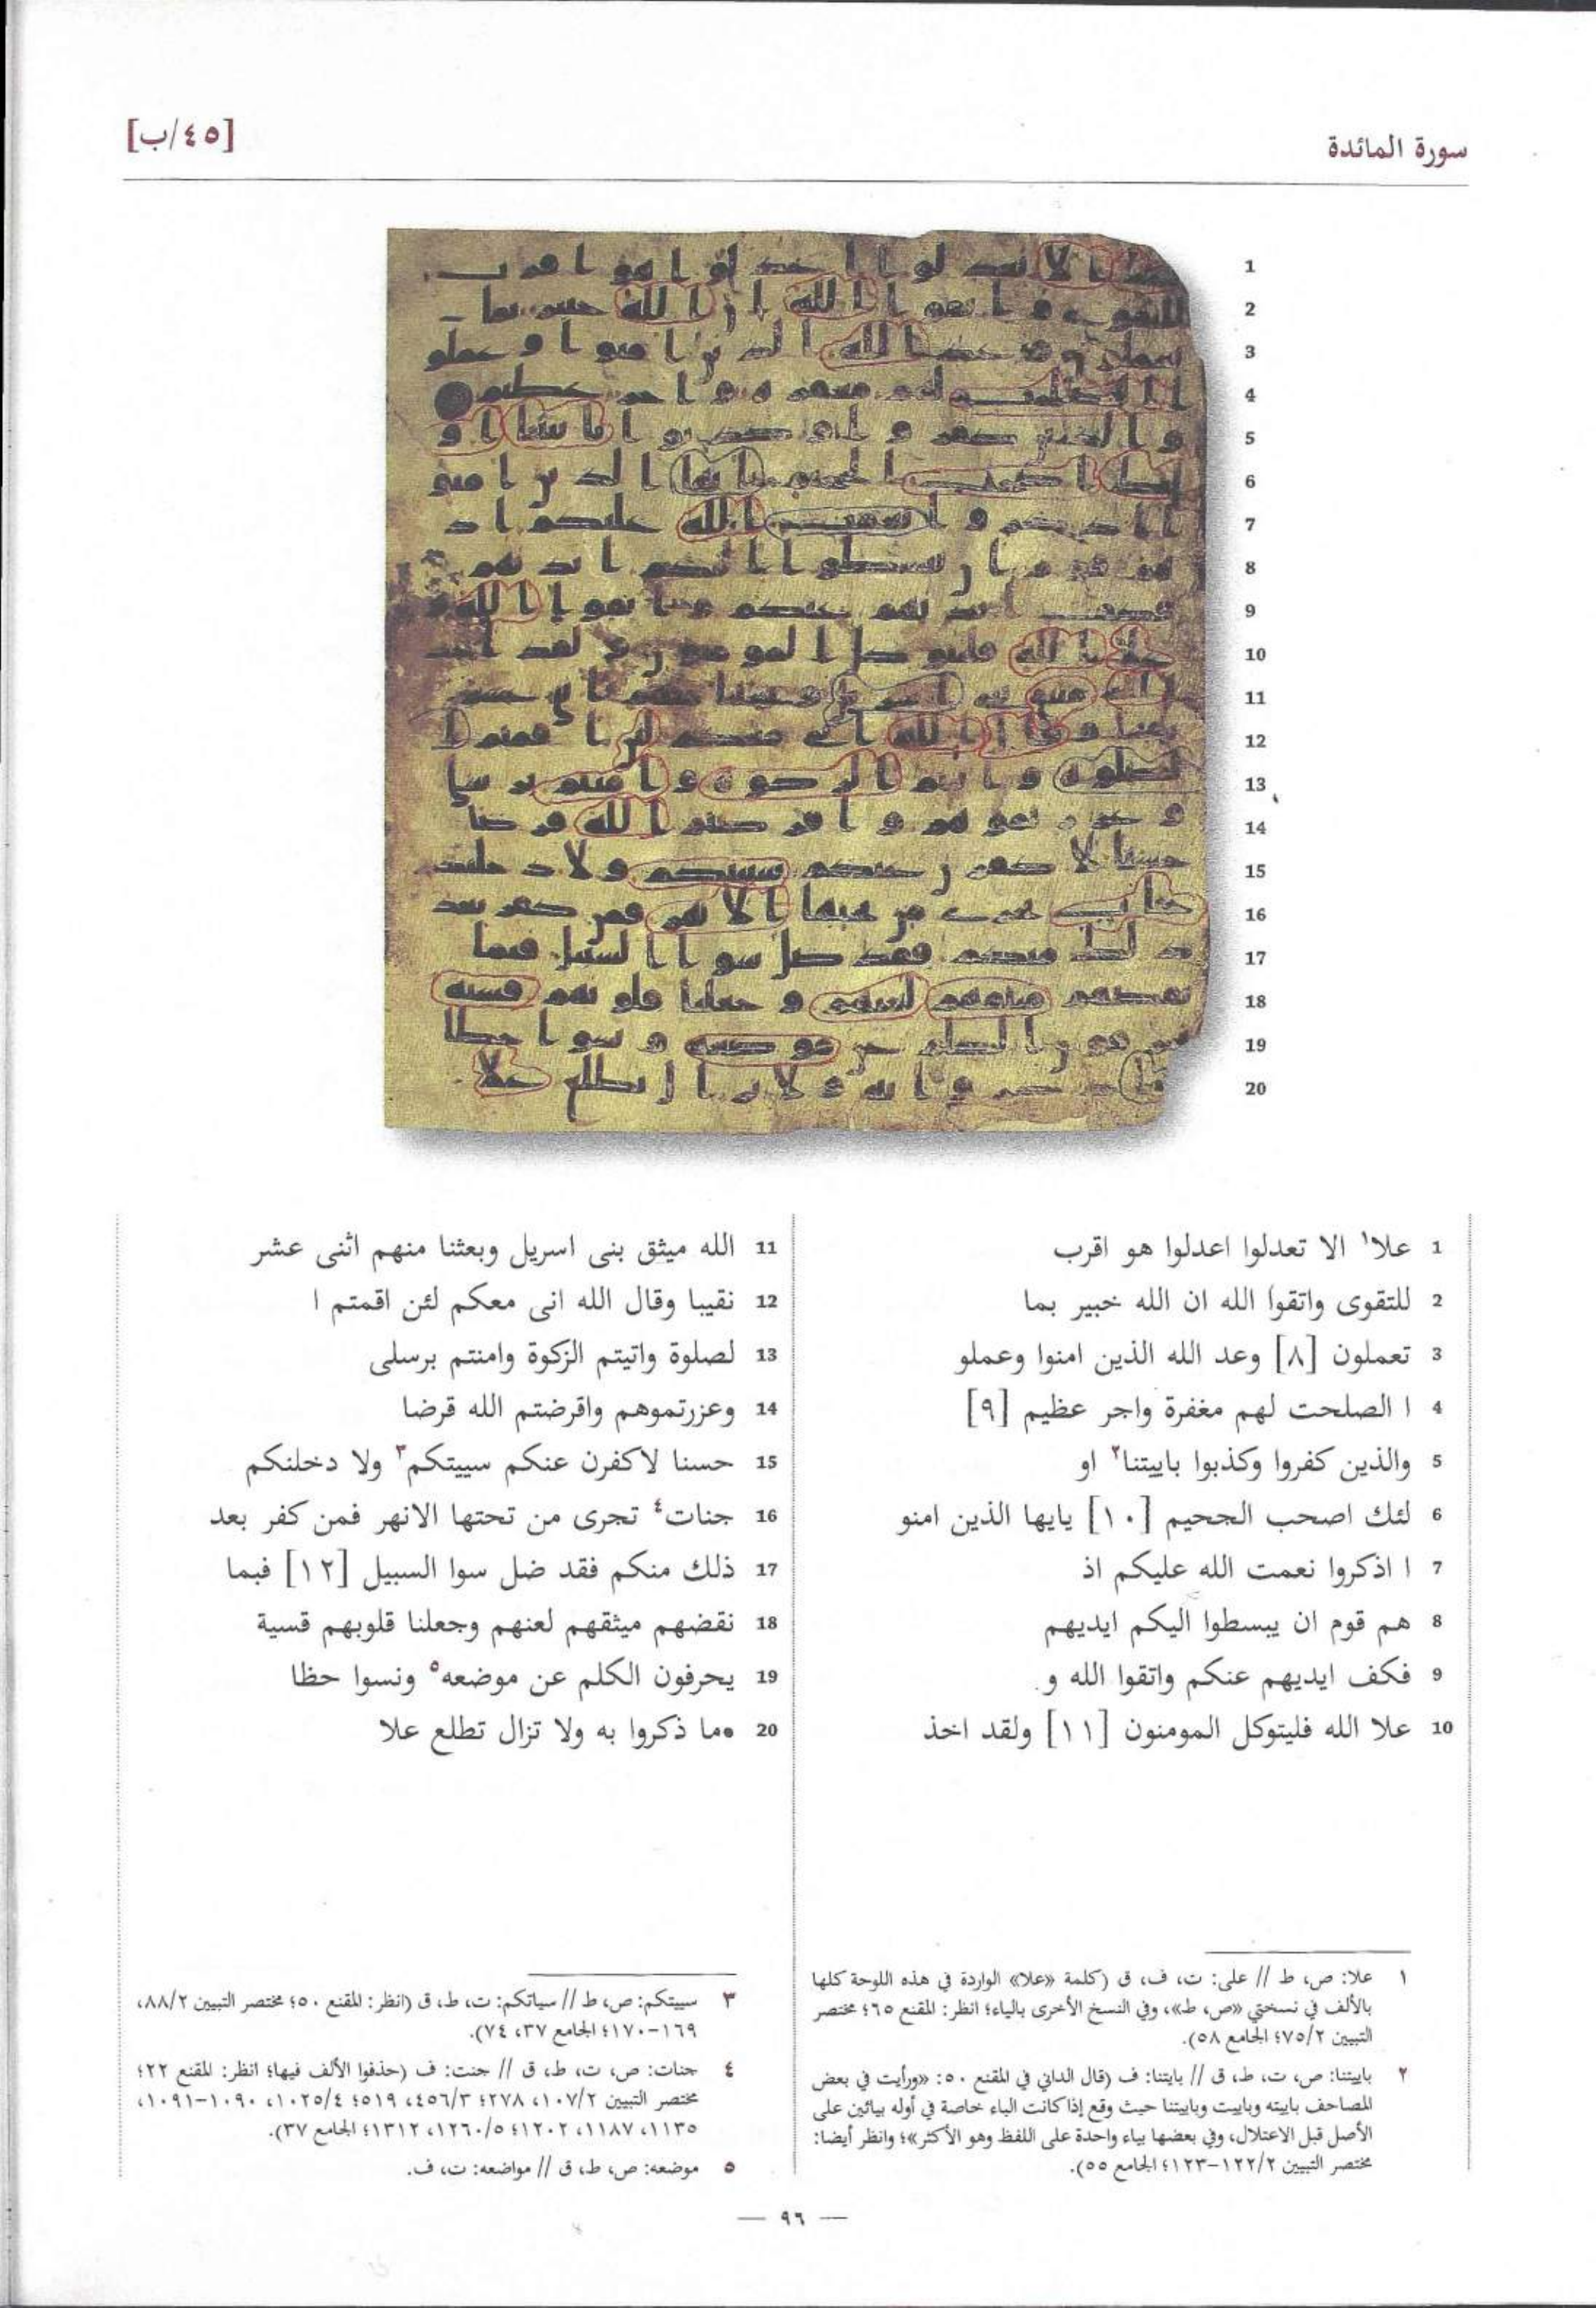 سورة المائدة
[٤٥/ب]
1 علا١ الا تعدلوا اعدلوا هو اقرب
2 للتقوى واتقوا الله ان الله خبير بما
3 تعملون [٨] وعد الله الذين امنوا وعملو
4 ا الصلحت لهم مغفرة واجر عظيم [٩]
5 والذين كفروا وكذبوا باييتنا٢ او
6 لئك اصحب الجحيم [١٠] يايها الذين امنو
7 ا اذكروا نعمت الله عليكم اذ
8 هم قوم ان يبسطوا اليكم ايديهم
9 فكف ايديهم عنكم واتقوا الله و
10 علا الله فليتوكل المومنون [١١] ولقد اخذ
11 الله ميثق بنى اسريل وبعثنا منهم اثنى عشر
12 نقيبا وقال الله انى معكم لئن اقمتم ا
13 لصلوة واتيتم الزكوة وامنتم برسلى
14 وعزرتموهم واقرضتم الله قرضا
15 حسنا لاكفرن عنكم سييتكم٣ ولا دخلنكم
16 جنات٤ تجرى من تحتها الانهر فمن كفر بعد
17 ذلك منكم فقد ضل سوا السبيل [١٢] فبما
18 نقضهم ميثقهم لعنهم وجعلنا قلوبهم قسية
19 يحرفون الكلم عن موضعه٥ ونسوا حظا
20 مما ذكروا به ولا تزال تطلع علا
١ علا: ص، ط // على: ت، ف، ق (كلمة «علا» الواردة في هذه اللوحة كلها
بالألف في نسختي «ص، ط»، وفي النسخ الأخرى بالياء؛ انظر: المقنع ٦٥؛ مختصر
التبيين ٧٥/٢؛ الجامع ٥٨).
٢ باييتنا: ص، ت، ط، ق // بايتنا: ف (قال الداني في المقنع ٥٠: «ورأيت في بعض
المصاحف باييته وباييت وباييتنا حيث وقع إذا كانت الباء خاصة في أوله بيائين على
الأصل قبل الاعتلال، وفي بعضها بياء واحدة على اللفظ وهو الأكثر»؛ وانظر أيضا:
مختصر التبيين ١٢٢/٢-١٢٣؛ الجامع ٥٥).
٣ سييتكم: ص، ط // سياتكم: ت، ط، ق (انظر: المقنع ٥٠؛ مختصر التبيين ٨٨/٢،
١٦٩-١٧٠؛ الجامع ٣٧، ٧٤).
٤ جنات: ص، ت، ط، ق // جنت: ف (حذفوا الألف فيها؛ انظر: المقنع ٢٢؛
مختصر التبيين ١٠٧/٢، ٢٧٨؛ ٤٥٦/٣، ٥١٩؛ ١٠٢٥/٤، ١٠٩٠-١٠٩١،
١١٣٥، ١١٨٧، ١٢٠٢؛ ١٢٦٠/٥، ١٣١٢؛ الجامع ٣٧).
٥ موضعه: ص، ط، ق // مواضعه: ت، ف.
— ٩٦ —